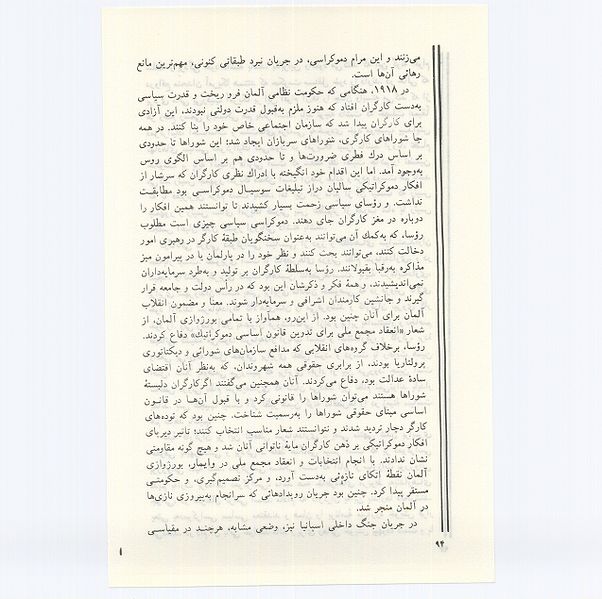 می‌زنند و این مرام دموکراسی، در جریان نبرد طبقاتی کنونی، مهم‌ترین مانع
رهائی آن‌ها است.
در ۱۹۱۸، هنگامی که حکومت نظامی آلمان فرو ریخت و قدرت سیاسی
به‌دست کارگران افتاد که هنوز ملزم به‌قبول قدرت دولتی نبودند، این آزادی
برای کارگران پیدا شد که سازمان اجتماعی خاص خود را بنا کنند. در همه
جا شوراهای کارگری، شوراهای سربازان ایجاد شد؛ این شوراها تا حدودی
بر اساس درك فطری ضرورت‌ها و تا حدودی هم بر اساس الگوی روس
به‌وجود آمد. اما این اقدام خود انگیخته با ادراك نظری کارگران که سرشار از
افکار دموکراتیکی سالیان دراز تبلیغات سوسیال دموکراسی بود مطابقت
نداشت. و رؤسای سیاسی زحمت بسیار کشیدند تا توانستند همین افکار را
دوباره در مغز کارگران جای دهند. دموکراسی سیاسی چیزی است مطلوب
رؤسا، که به‌کمك آن می‌توانند به‌عنوان سخنگویان طبقهٔ کارگر در رهبری امور
دخالت کنند، می‌توانند بحث کنند و نظر خود را در پارلمان یا در پیرامون میز
مذاکره به‌رقبا بقبولانند. رؤسا به‌سلطهٔ کارگران بر تولید و به‌طرد سرمایه‌داران
نمی‌اندیشیدند، و همهٔ فکر و ذکرشان این بود که در رأس دولت و جامعه قرار
گیرند و جانشین کارمندان اشرافی و سرمایه‌دار شوند. معنا و مضمون انقلاب
آلمان برای آنان چنین بود. از این‌رو، هماواز با تمامی بورژوازی آلمان، از
شعار «انعقاد مجمع ملی برای تدوین قانون اساسی دموکراتیك» دفاع کردند.
رؤسا، برخلاف گروه‌های انقلابی که مدافع سازمان‌های شورائی و دیکتاتوری
پرولتاریا بودند، از برابری حقوقی همه شهروندان، که به‌نظر آنان اقتضای
سادهٔ عدالت بود، دفاع می‌کردند. آنان همچنین می‌گفتند اگرکارگران دلبستهٔ
شوراها هستند می‌توان شوراها را قانونی کرد و با قبول آن‌ها در قانون
اساسی مبنای حقوقی شوراها را به‌رسمیت شناخت. چنین بود که توده‌های
کارگر دچار تردید شدند و نتوانستند شعار مناسب انتخاب کنند؛ تاثیر دیرپای
افکار دموکراتیکی بر ذهن کارگران مایهٔ ناتوانی آنان شد و هیچ گونه مقاومتی
نشان ندادند. با انجام انتخابات و انعقاد مجمع ملی در وایمار، بورژوازی
آلمان نقطهٔ اتکای تازه‌ئی به‌دست آورد، و مرکز تصمیم‌گیری، و حکومتی
مستقر پیدا کرد. چنین بود جریان رویدادهائی که سرانجام به‌پیروزی نازی‌ها
در آلمان منجر شد.
در جریان جنگ داخلی اسپانیا نیز، وضعی مشابه، هرچند در مقیاسی
۹۴